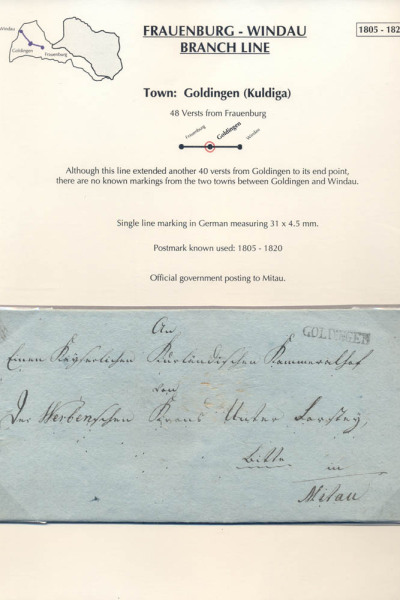 Windau
Goldingen
Frauenburg
FRAUENBURG - WINDAU
BRANCH LINE
1805 - 182
Town: Goldingen (Kuldiga)
48 Versts from Frauenburg
Frauenburg
Goldingen
Windau
Although this line extended another 40 versts from Goldingen to its end point,
there are no known markings from the two towns between Goldingen and Windau.
Single line marking in German measuring 31 x 4.5 mm.
Postmark known used: 1805 - 1820
Official government posting to Mitau.
An
GOLDINGEN
Einen Kayserlichen Kurländischen Kammeralhof
von
Der Werbenschen Krons Unter Forstey,
in
Mitau